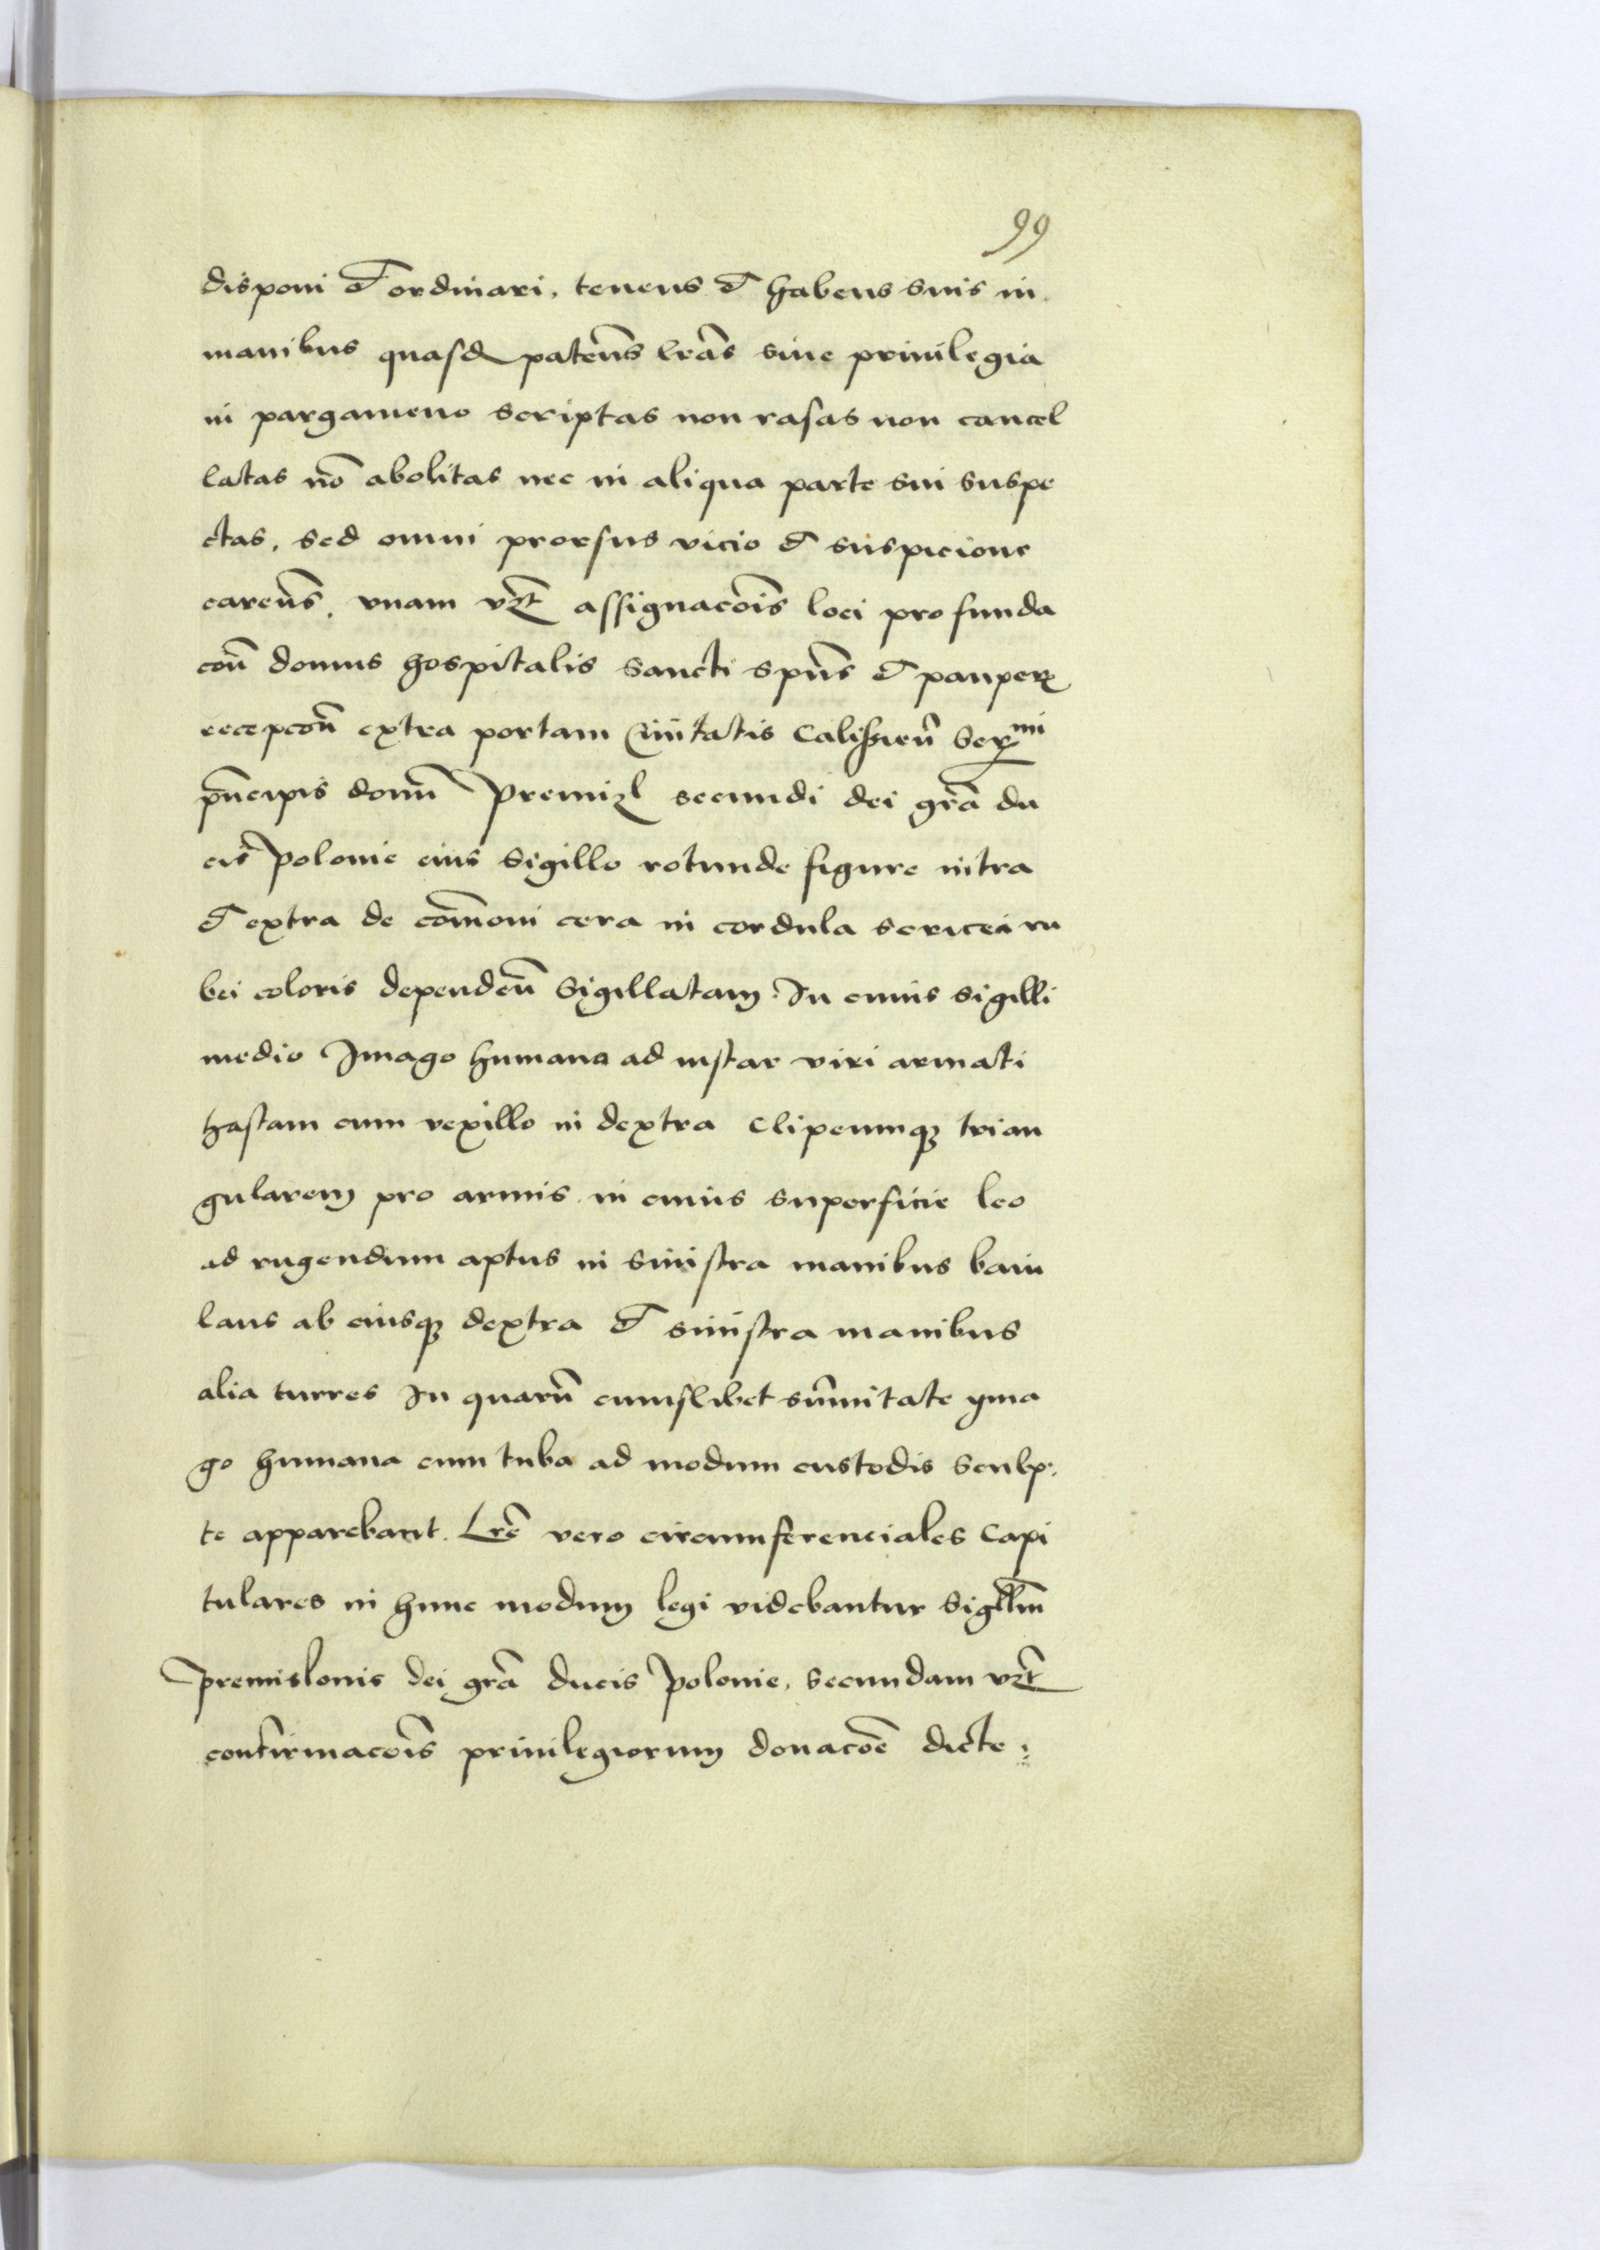 99
disponi et ordinari, tenens et habens suis in
manibus quasd patens lrãs siue priuilegia
in pargameno scriptas non rasas non cancel
latas nõ abolitas nec in aliqua parte sui suspe
ctas, sed omni prorsus vicio et suspicione
careñs, vnam vzt assignacõis loci pro funda
coñ domus hospitalis sancti spũs et pauperꝝ
recepcoñ extra portam Ciuitatis Calissieñ Serᵐⁱ
pñcipis domñ Premizl secundi dei grã du
cis Polonie eius Sigillo rotunde figure intra
et extra de com̃oni cera in cordula sericei ru
bei coloris dependeñ Sigillatam. In cuius sigilli
medio Imago humana ad instar viri armati
hastam cum vexillo in dextra Clipeumqꝫ trian
gularem pro armis in cuius superficie leo
ad rugendum aptus in sinistra manibus baiu
lans ab eiusqꝫ dextra et sinistra manibus
alia turres In quarũ cuiuslibet sũmitate yma
go humana cum tuba ad modum custodis sculp:
te apparebant. Lrẽ vero circumferenciales Capi
tulares in hunc modum legi videbantur Sigllm̃
Premislonis dei grã ducis Polonie, secundam vzt
confirmacõis priuilegiorum donacõe dicte: